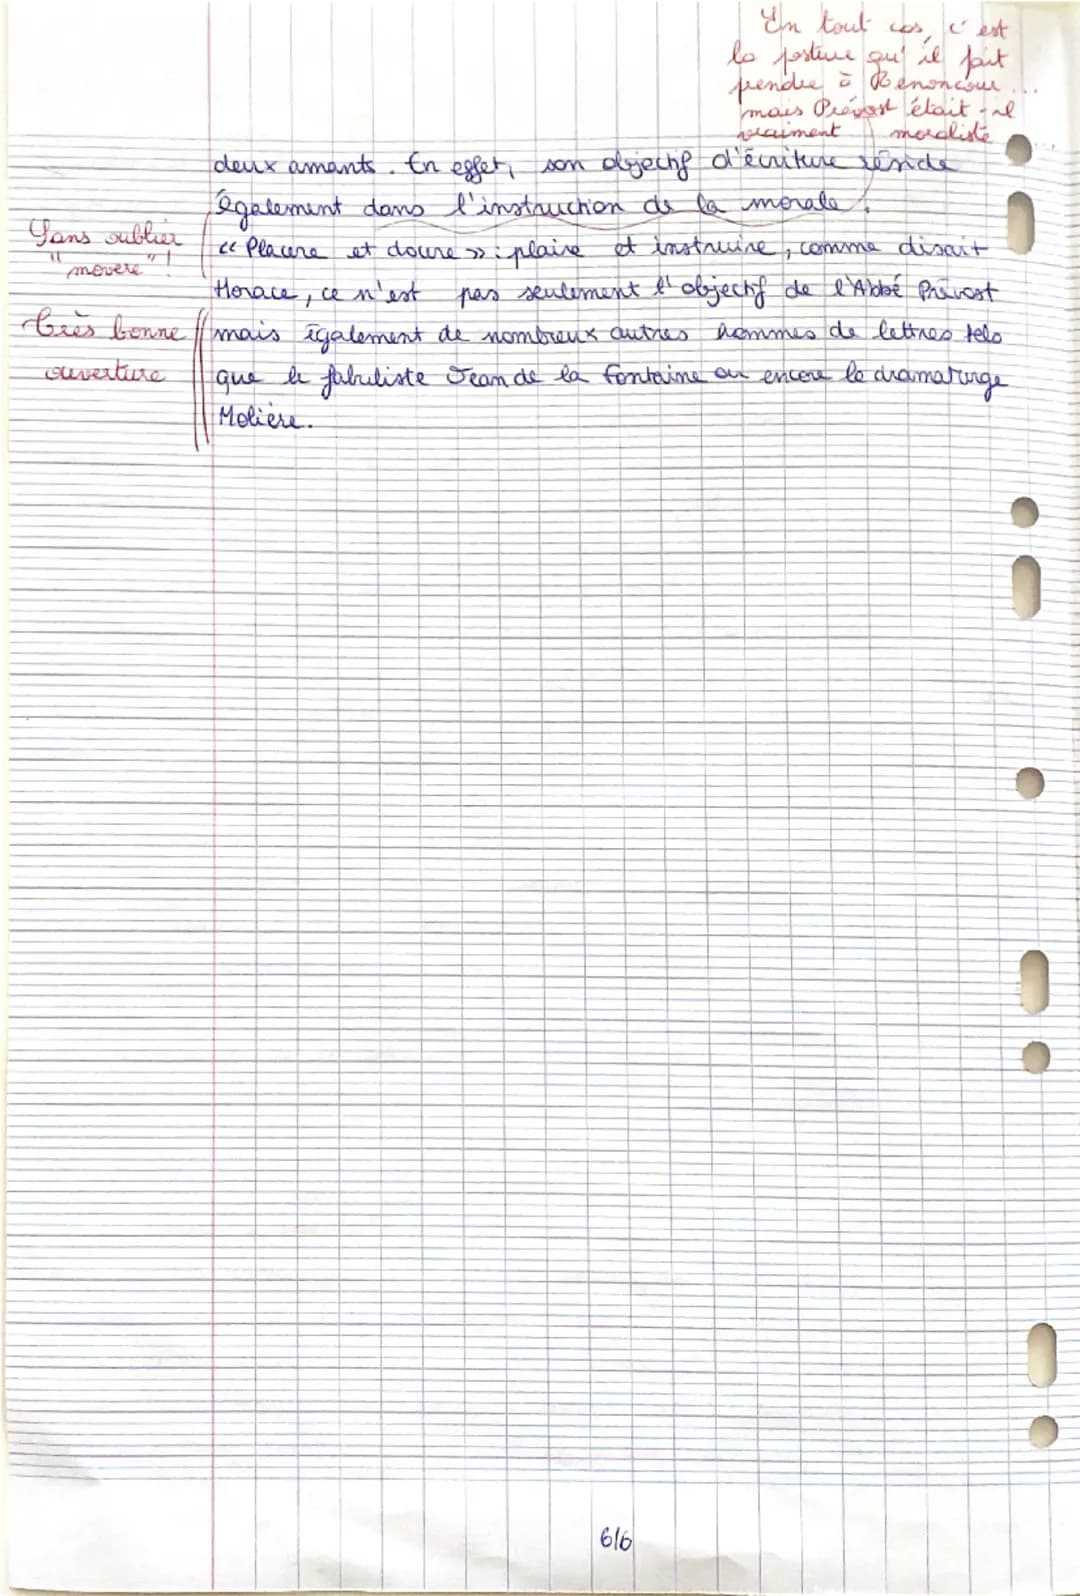 En tout cas, c'est
la posture qu'il fait
prendre à Renoncour...
mais Prévost était-il
vraiment moraliste...
deux amants. En effet, son objectif d'écriture réside
également dans l'instruction de la morale.
Sans oublier
"movere"!
« Placere et docere » : plaire et instruire, comme disait
Horace, ce n'est pas seulement l'objectif de l'Abbé Prévost
Très bonne
ouverture
mais également de nombreux autres hommes de lettres tels
que le fabuliste Jean de la Fontaine ou encore le dramaturge
Molière.
6/6